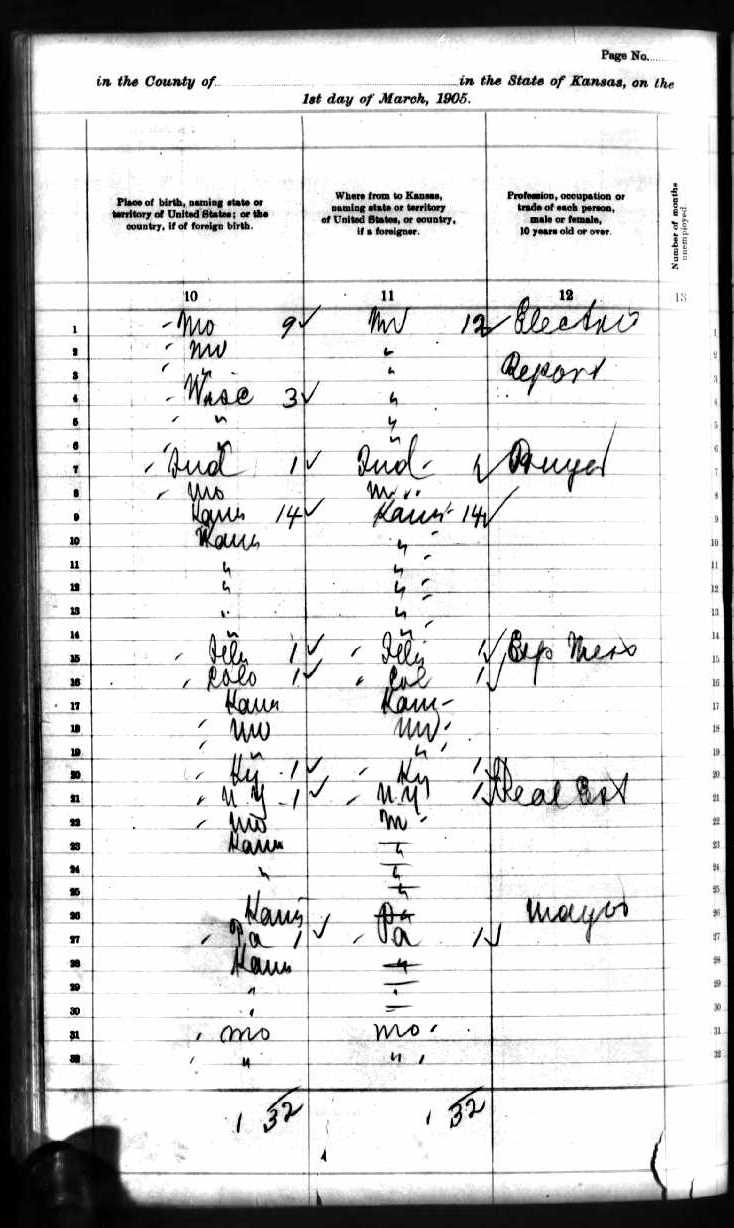 Page No.
in the County of in the State of Kansas, on the
1st day of March, 1905.
Place of birth, naming state or territory of United States; or the country, if of foreign birth.
Where from to Kansas, naming state or territory of United States, or country, if a foreigner.
Profession, occupation or trade of each person, male or female, 10 years old or over.
Number of months unemployed.
10 11 12 13
1 Mo 9✓ Mo 12✓ Electric 1
2 Mo " 2
3 " " Report 3
4 Wisc 3✓ " 4
5 " " 5
6 " " 6
7 Ind 1✓ Ind 7
8 Mo 8
9 Kans 14✓ Kans 14✓ 9
10 Kans " 10
11 " " 11
12 " " 12
13 " " 13
14 " " 14
15 1✓ 1✓ Exp Mess 15
16 Colo 1✓ Col 1✓ 16
17 Kans Kans 17
18 Mo Mo 18
19 " 19
20 Ky 1✓ Ky 1 20
21 N.Y 1✓ N.Y 1✓ Real Est 21
22 Mo M 22
23 Kans " 23
24 " " 24
25 " 25
26 Kans Pa Mayor 26
27 Pa 1✓ Pa 1✓ 27
28 Kans " 28
29 " " 29
30 " 30
31 Mo Mo 31
32 " " 32
1 32 1 32